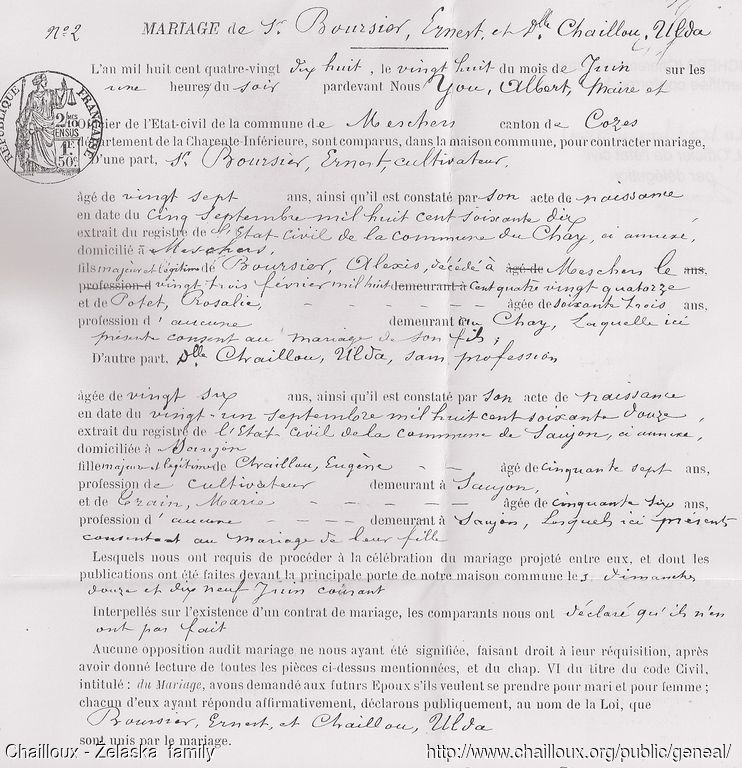 N° 2 MARIAGE de Sr. Boursier, Ernest, et Dlle Chaillou, Ulda
L'an mil huit cent quatre-vingt dix huit, le vingt huit du mois de Juin sur les
une heures du soir pardevant Nous You, Albert, Maire et
ier de l'Etat-civil de la commune de Meschers canton de Cozes
département de la Charente-Inférieure, sont comparus, dans la maison commune, pour contracter mariage,
D'une part, Sr. Boursier, Ernest, cultivateur,
RÉPUBLIQUE FRANÇAISE
2/10es EN SUS
1F 50c
âgé de vingt sept ans, ainsi qu'il est constaté par son acte de naissance
en date du cinq Septembre mil huit cent soixante dix
extrait du registre de l'Etat-Civil de la commune du Chay, ci annexé,
domicilié à Meschers,
fils majeur et légitime de Boursier, Alexis, décédé à âgé de Meschers le ans,
profession d vingt trois février mil huit demeurant à cent quatre vingt quatorze
et de Potet, Rosalie, - - - - - âgée de soixante trois ans,
profession d'aucune demeurant au Chay, Laquelle ici
présente consent au mariage de son fils;
D'autre part, Dlle Chaillou, Ulda, sans profession
âgée de vingt six ans, ainsi qu'il est constaté par son acte de naissance
en date du vingt-un septembre mil huit cent soixante douze,
extrait du registre de l'Etat-Civil de la commune de Saujon, ci annexé,
domiciliée à Saujon
fille majeure et légitime de Chaillou, Eugène - - âgé de cinquante sept ans,
profession de cultivateur demeurant à Saujon,
et de Marie - - - - - âgée de cinquante six ans,
profession d'aucune - - - - demeurant à Saujon, Lesquels ici présents
consentent au mariage de leur fille
Lesquels nous ont requis de procéder à la célébration du mariage projeté entre eux, et dont les
publications ont été faites devant la principale porte de notre maison commune les dimanches
douze et dix neuf Juin courant
Interpellés sur l'existence d'un contrat de mariage, les comparants nous ont déclaré qu'ils n'en
ont pas fait
Aucune opposition audit mariage ne nous ayant été signifiée, faisant droit à leur réquisition, après
avoir donné lecture de toutes les pièces ci-dessus mentionnées, et du chap. VI du titre du code Civil,
intitulé : du Mariage, avons demandé aux futurs Epoux s'ils veulent se prendre pour mari et pour femme ;
chacun d'eux ayant répondu affirmativement, déclarons publiquement, au nom de la Loi, que
Boursier, Ernest, et Chaillou, Ulda
sont unis par le mariage.
Chailloux - Zelaska family http://www.chailloux.org/public/geneal/